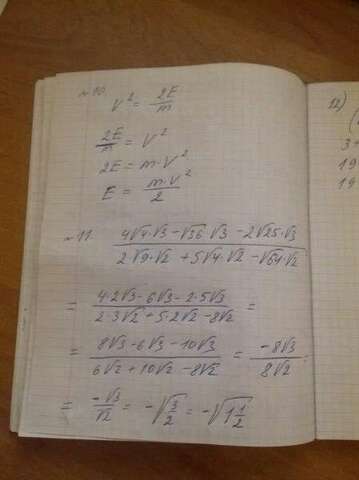 №10 V² = 2E/m
2E/m = V²
2E = m·V²
E = m·V²/2
№11 (4√4·√3 -√36·√3 -2√25·√3)/(2√9·√2 +5√4·√2 -√64·√2)
= (4·2√3 -6√3 -2·5√3)/(2·3√2 +5·2√2 -8√2) =
= (8√3 -6√3 -10√3)/(6√2 +10√2 -8√2) = -8√3/8√2 =
= -√3/√2 = -√(3/2) = -√(1 1/2)
12)
(
3+
19
19